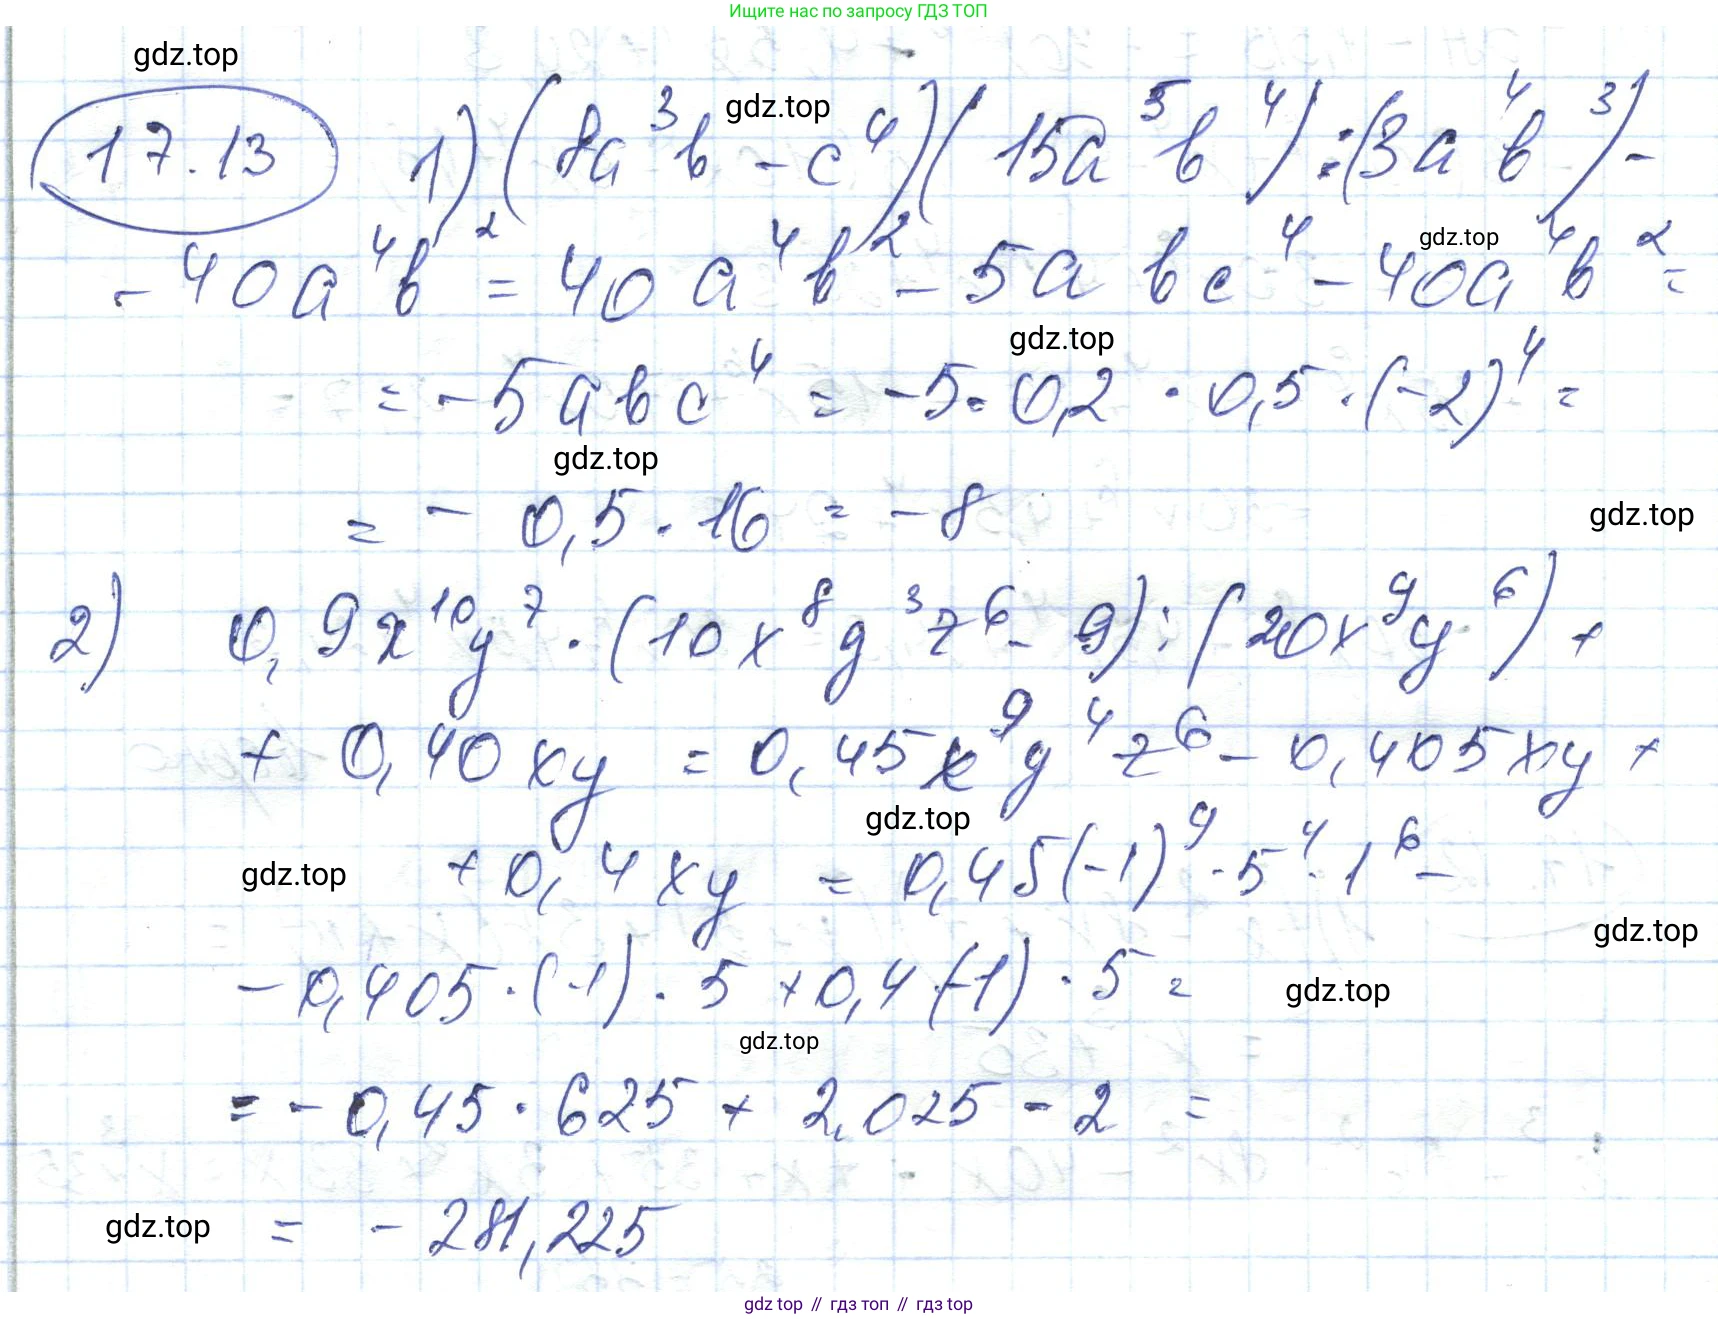 Ищите нас по запросу ГДЗ ТОП
gdz.top
17.13 1) (8a³b - c⁴)(15a⁵b⁴) : (3a⁴b³) -
gdz.top
- 40a⁴b² = 40a⁴b² - 5abc⁴ - 40a⁴b² =
gdz.top
= -5abc⁴ = -5 · 0,2 · 0,5 · (-2)⁴ =
gdz.top
gdz.top
= - 0,5 · 16 = -8
gdz.top
2) 0,9x¹⁰y⁷ · (10x⁸y³z⁶ - 9) : (20x⁹y⁶) +
+ 0,40xy = 0,45x⁹y⁴z⁶ - 0,405xy +
gdz.top
+ 0,4xy = 0,45(-1)⁹ · 5⁴ · 1⁶ -
gdz.top
gdz.top
- 0,405 · (-1) · 5 + 0,4·(-1) · 5 =
gdz.top
gdz.top
= - 0,45 · 625 + 2,025 - 2 =
= - 281,225
gdz.top
gdz top // гдз топ // гдз top